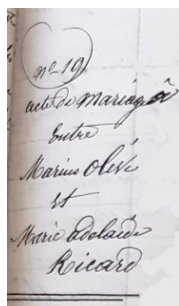 nº 19
acte de mariage
Entre
Marius Olive
Et
Marie Adelaïde
Ricard